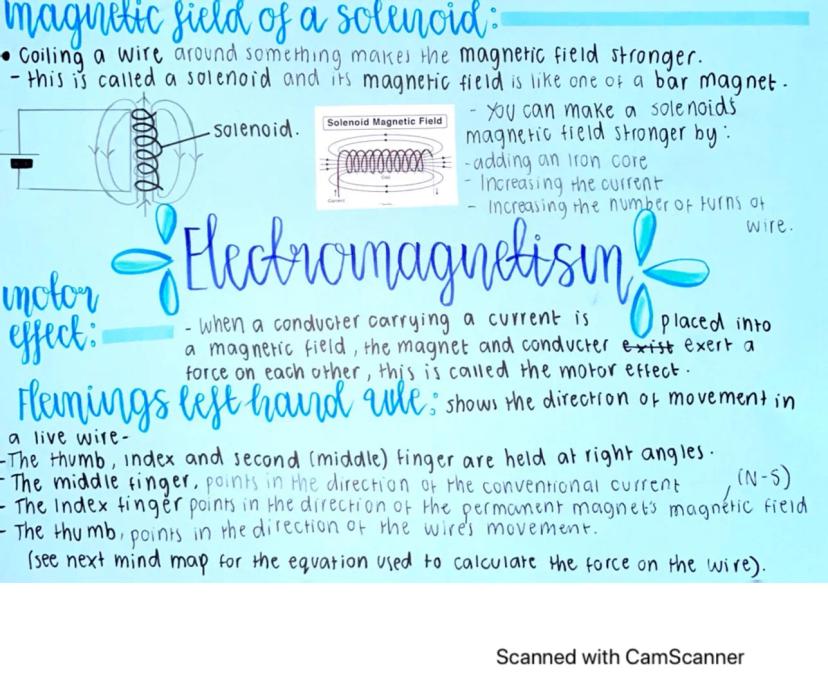 magnetic field of a solenoid:
• Coiling a wire around something makes the magnetic field stronger.
- this is called a solenoid and its magnetic field is like one of a bar magnet.
solenoid.
Solenoid Magnetic Field
Current
- you can make a solenoids
magnetic field stronger by:
- adding an Iron core
- Increasing the current
- Increasing the number of turns of
wire.
Electromagnetism
motor
effect:
- When a conducter carrying a current is placed into
a magnetic field, the magnet and conducter exist exert a
force on each other, this is called the motor effect.
Flemings left hand rule: shows the direction of movement in
a live wire-
- The thumb, index and second (middle) finger are held at right angles.
- The middle finger, points in the direction of the conventional current
(N-S)
- The Index finger points in the direction of the permament magnet's magnetic field
- The thumb, points in the direction of the wire's movement.
(see next mind map for the equation used to calculate the force on the wire).
Scanned with CamScanner